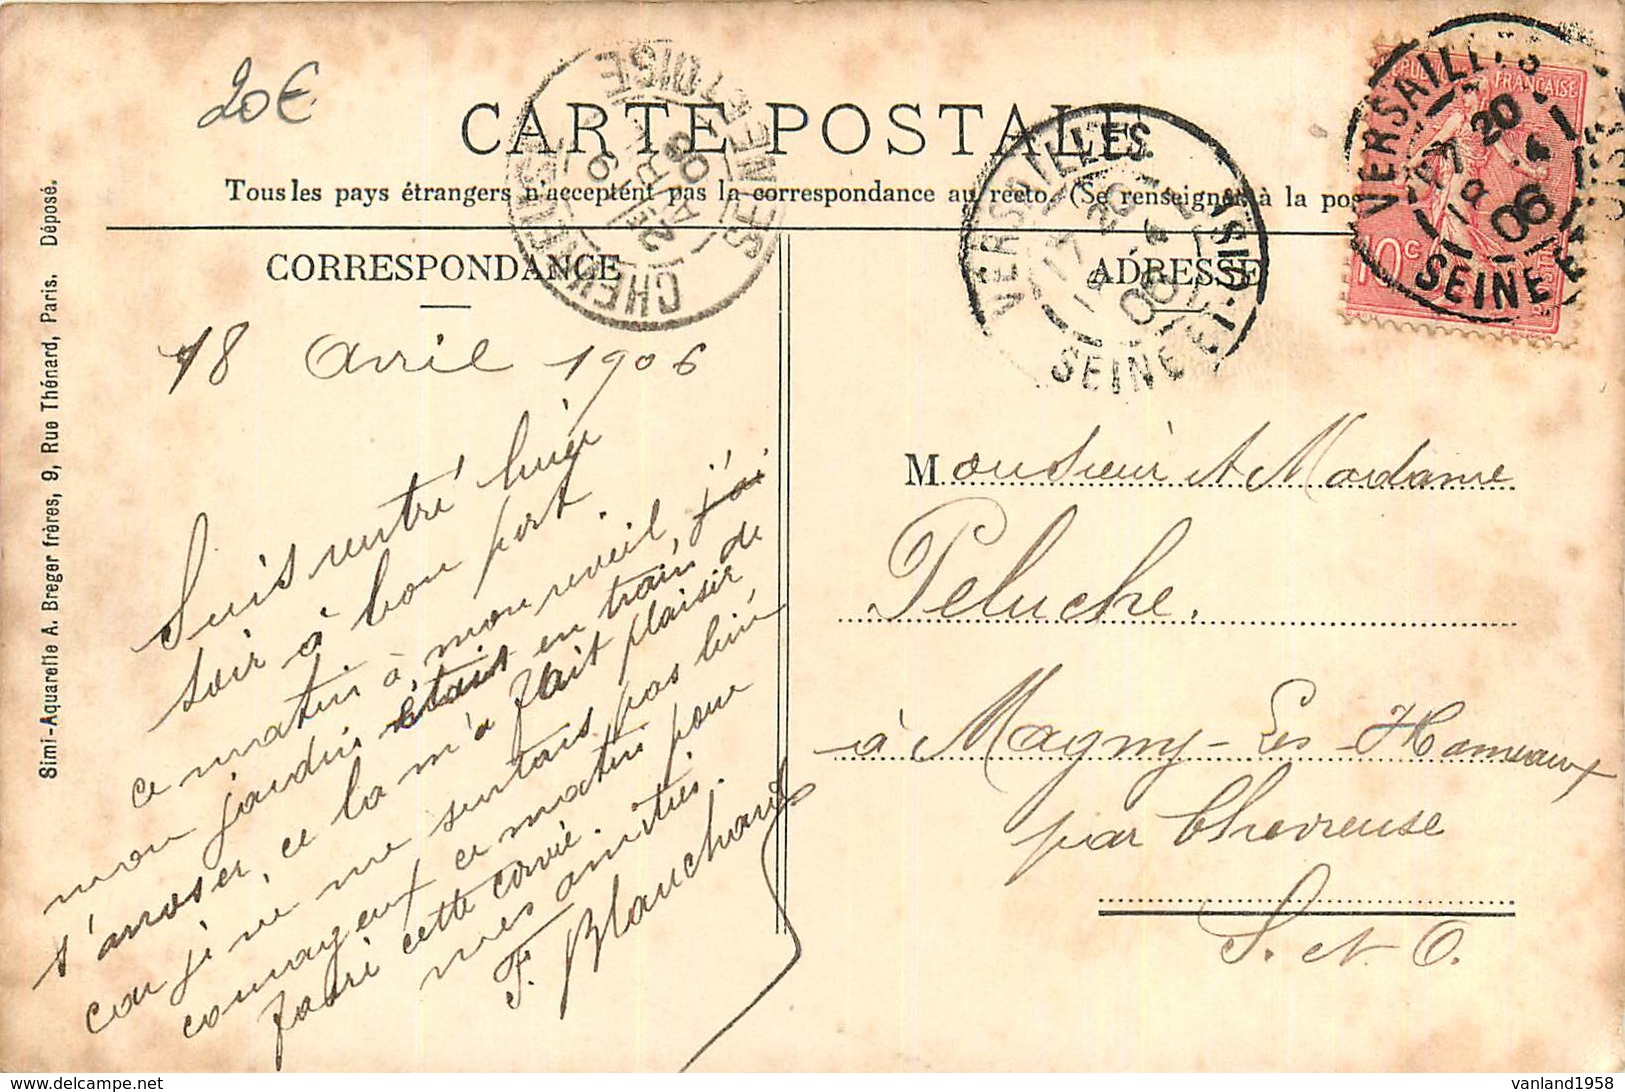 20€
CARTE POSTALE
Tous les pays étrangers n'acceptent pas la correspondance au recto. (Se renseigner à la pos
CORRESPONDANCE
ADRESSE
Simi-Aquarelle A. Breger frères, 9, Rue Thénard, Paris. Déposé.
CHEVREUSE
SEINE ET OISE
19
25
AVRIL
06
VERSAILLES
17 20
19 4
06
SEINE ET-OISE
RÉPUBLIQUE FRANÇAISE
10c
POSTES
VERSAILLES
17 20
19 4
06
SEINE ET OISE
18 Avril 1906
Suis rentré hier
soir à bon port.
ce matin à mon reveil, j'ai
mon jardin était en train de
s'arroser, ce la m'a fait plaisir
car je ne me sentais pas bien
courageux ce matin pour
faire cette corvée.
mes amitiés.
F. Blanchard
Monsieur et Madame
Peluche.
à Magny-Les-Hameaux
par Chevreuse
S. et O.
vanland1958